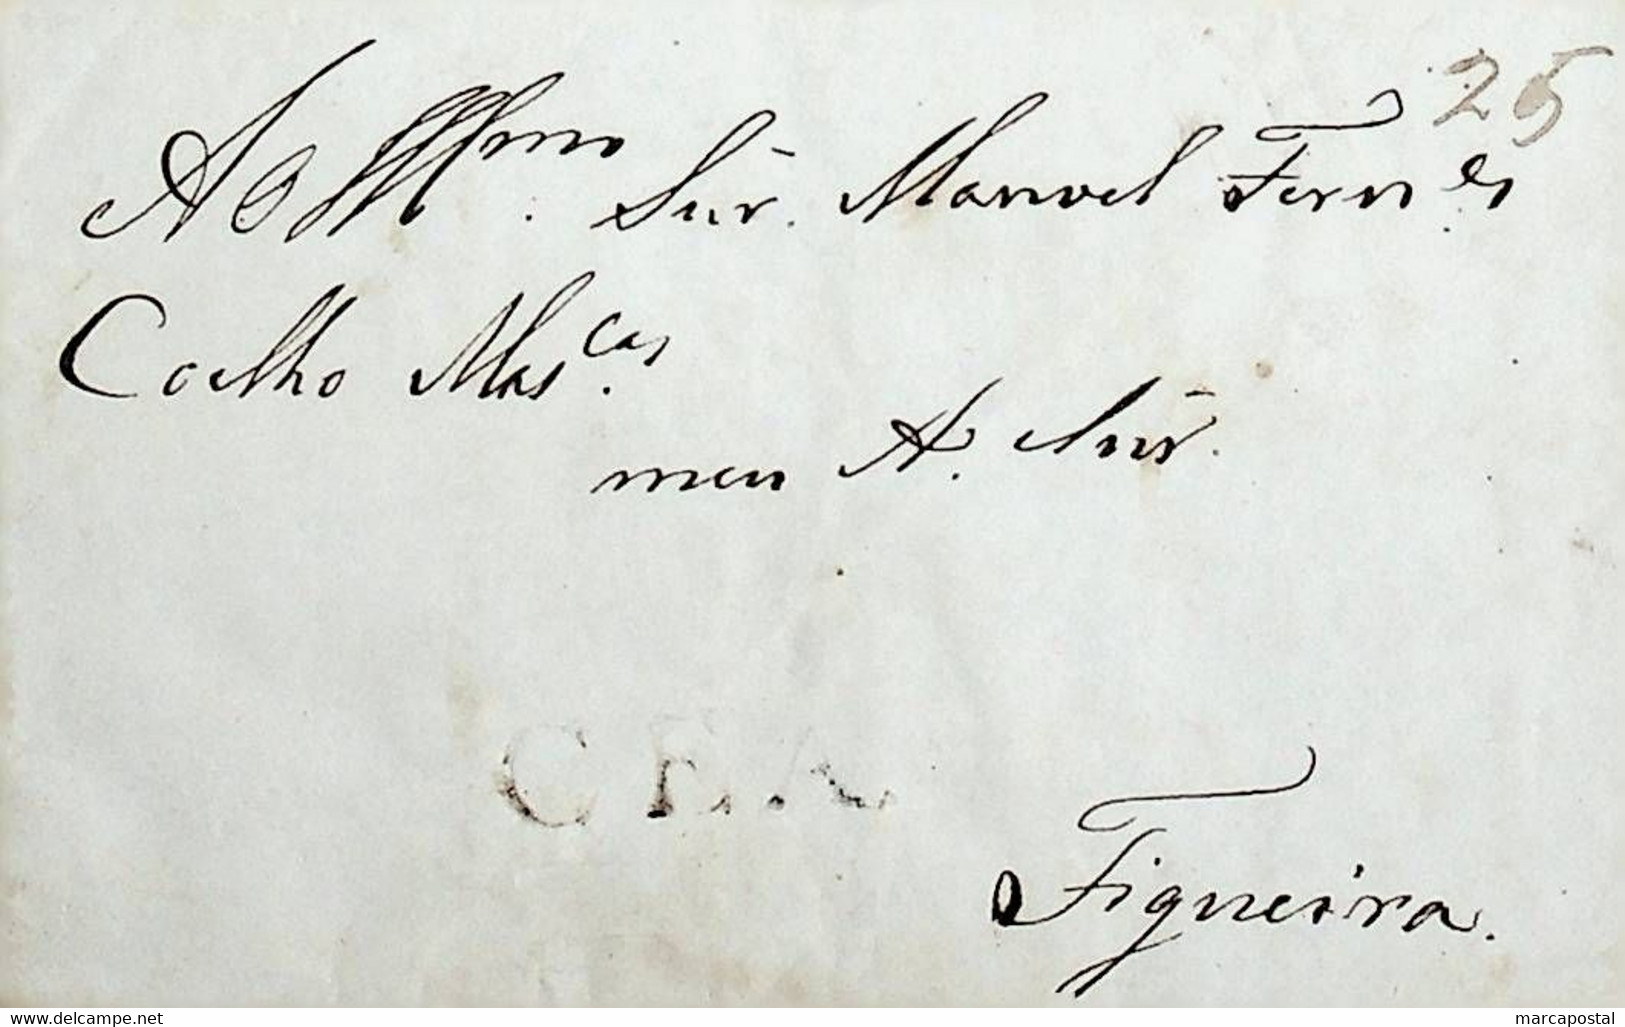 25
Ao Illmo. Snr. Manoel Fern.es
Coelho Mas.cas
meu A. Snr.
CEA
Figueira.
www.delcampe.net
marcapostal